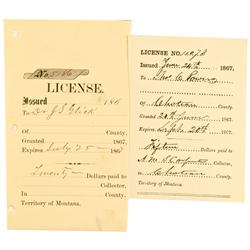 LICENSE.
Issued 186
To Dr J S Glick
Of
County.
Granted 1867
Expires July 25 1867
Twenty
Dollars paid to
Collector,
In County,
Territory of Montana.
LICENSE No.
Issued June 24th 1867,
To
Of Choteau County,
Granted 20th June 1867
Expires Sept 20th 1867.
Fifteen
Dollars paid to
Collector,
In Choteau County,
Territory of Montana.